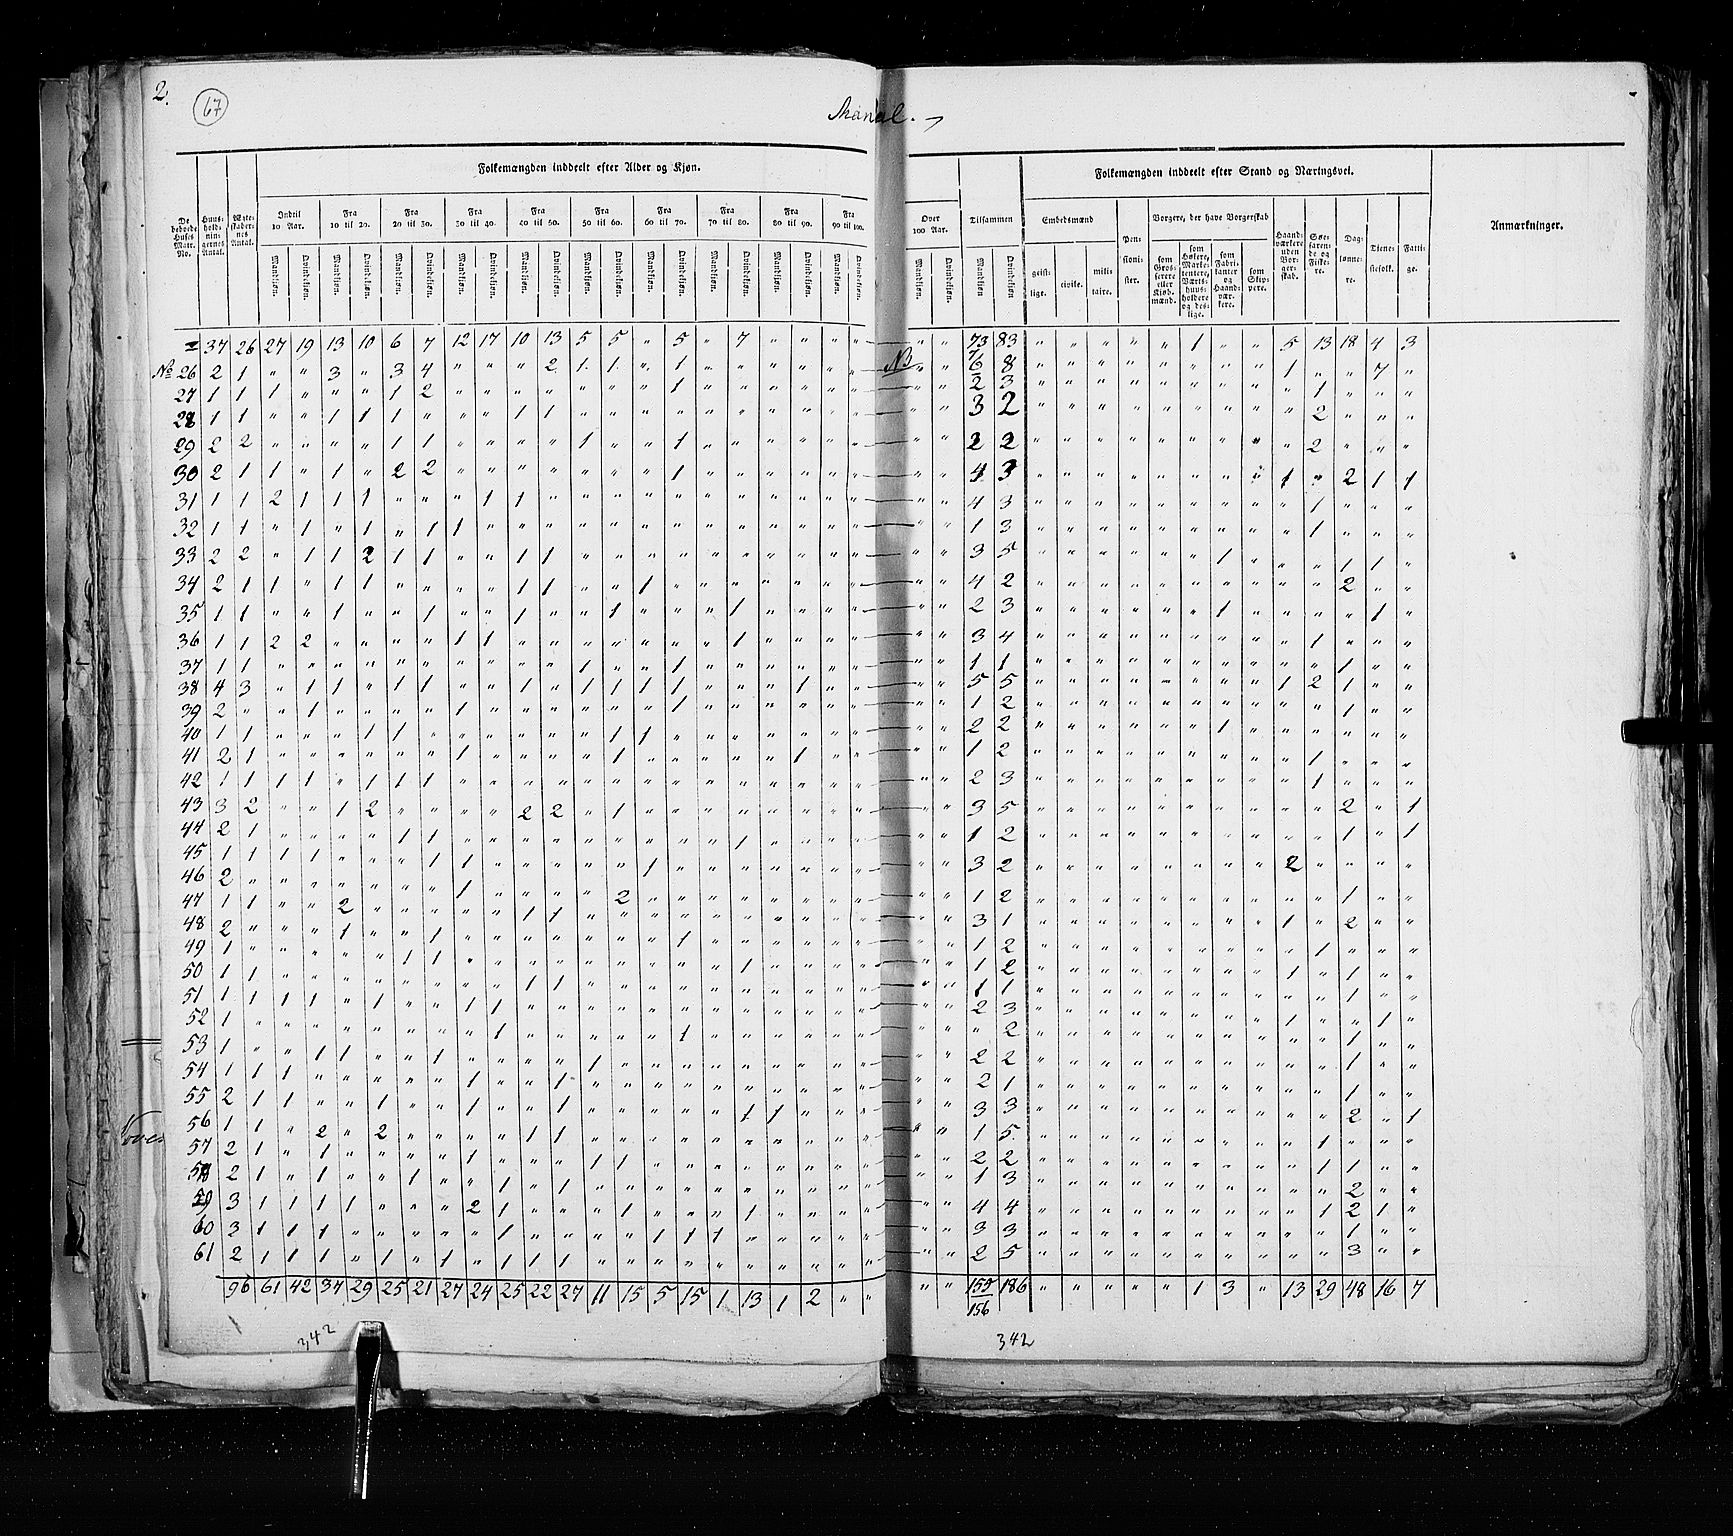 2.
67
Mandal.
Folkemængden inddeelt efter Alder og Kjøn.
Folkemængden inddeelt efter Stand og Næringsvei.
De bebvede Huses Matr. No.
Huus-hold-nin-gernes Antal.
Ægte-skaber-nes Antal.
Indtil 10 Aar.
Fra 10 til 20.
Fra 20 til 30.
Fra 30 til 40.
Fra 40 til 50.
Fra 50 til 60.
Fra 60 til 70.
Fra 70 til 80.
Fra 80 til 90.
Fra 90 til 100.
Over 100 Aar.
Tilsammen
Mandkjøn. Qvindekjøn.
Embedsmænd
geist-lige.
civile.
mili-taire.
Pen-sioni-ster.
Borgere, der have Borgerskab
som Gros-serere eller Kjøb-mænd.
som Høkere, Marke-tentere, Værts-huus-holdere og des-lige.
som Fabri-kanter og Haand-vær-kere.
som Skip-pere.
Haand-værkere uden Bor-ger-skab.
Søe-faren-de og Fiske-re.
Dag-lønne-re.
Tjene-stefolk.
Fatti-ge.
Anmærkninger.
37 26 27 19 13 10 6 7 12 17 10 13 5 5 " 5 " 7 " " " " " " 73 83 " " " " " 1 " " 5 13 18 4 3
No 26 2 1 " " 3 " 3 4 " " " 2 1 1 " 1 " " " " " " 8 " " " " " " " " 1 " " 7 "
27 1 1 1 " " " 1 2 " " " " " " " 1 " " " " " " " " 2 3 " " " " " " " " " 1 " " "
28 1 1 " " 1 1 1 " " " 1 1 " " " " " " " " " " " " 3 2 " " " " " " " " " 2 " " "
29 2 2 " " " " 1 1 " " " " 1 " " 1 " " " " " " " " 2 2 " " " " " " " " " 2 " " "
30 2 1 1 " 1 " 2 2 " " " " " " " 1 " " " " " " " " 4 3 " " " " " " " " 1 " 2 1 1
31 1 1 2 1 1 1 " " " 1 1 " " " " " " " " " " " " " 4 3 " " " " " " " " " 1 " " "
32 1 1 " 1 " 1 " 1 1 " " " " " " " " " " " " " " " 1 3 " " " " " " " " " 1 " " "
33 2 2 " 1 1 2 1 1 " " 1 1 " " " " " " " " " " " " 3 5 " " " " " " 1 " " " 1 1 "
34 2 1 1 " 1 1 " " " " 1 1 " " 1 " " " " " " " " " 4 2 " " " " " " " " " " 2 " "
35 1 1 " " 1 " " 1 " " 1 " " 1 " " " 1 " " " " " " 2 3 " " " " " " 1 " " " " 1 "
36 1 1 2 2 " " " " 1 1 " " " " " " " 1 " " " " " " 3 4 " " " " " " " " " 1 " " "
37 1 1 " " " " " " " " " " 1 " " 1 " " " " " " " " 1 1 " " " " " " " " " " 1 " "
38 4 3 " 1 1 " 1 1 " " 1 " 1 1 1 1 " " " 1 " " " " 5 5 " " " " " " " " 1 2 1 " "
39 2 " " 1 " " " " 1 " " " " " " 1 " " " " " " " " 1 2 " " " " " " " " " " 1 " "
40 1 1 " " " 1 1 " " " " " " 1 1 " " " " " " " " " 2 2 " " " " " " 1 " " " " " "
41 2 1 " " " " " " 1 " " " " 1 " " " " " 1 " " " " 1 2 " " " " " " " " " 1 " " "
42 1 1 1 1 " 1 1 1 " " " " " " " " " " " " " " " " 2 3 " " " " " " " " " 1 " " "
43 3 2 " " 1 2 " " " " 2 2 " 1 " " " " " " " " " " 3 5 " " " " " " " " " " 2 " 1
44 2 1 " " " " 1 1 " " " " " " " " " 1 " " " " " " 1 2 " " " " " " " " " " 1 " 1
45 1 1 1 1 " " " 1 1 " " " " " 1 " " " " " " " " " 3 2 " " " " " " " " 2 " " " "
46 2 " " " " " " " 1 " " " " 2 " " " " " " " " " " 1 2 " " " " " " " " " " 1 " "
47 1 1 " " 2 " " " " " 1 1 " " " " " " " " " " " " 3 1 " " " " " " " " 1 " 2 " "
48 2 " " " 1 " " 1 " " " " " " " 1 " " " " " " " " 1 2 " " " " " " " " " 1 " " "
49 1 " " " " " 1 1 " " " " " " " " " 1 " " " " " " 1 2 " " " " " " " " 1 " 1 " "
50 1 1 " " " " " " " " 1 1 " " " " " " " " " " " " 1 1 " " " " " " " " " " 1 " "
51 1 1 1 1 " 1 " " 1 1 " " " " " " " " " " " " " " 2 3 " " " " " " " " 1 " " 1 "
52 1 " " " " " " " " 1 " " " " " 1 " " " " " " " " " 2 " " " " " " " " " " 1 " "
53 1 " " 1 1 " " 1 " " " " 1 " " " " " " " " " " " 2 2 " " " " " " " " " " 1 " "
54 1 1 1 " " " " " 1 " " 1 " " " " " " " " " " " " 2 1 " " " " " " " " " " 1 " "
55 2 1 1 " " 1 " " 1 " " 1 " " " " " 1 1 " " " " " 3 3 " " " " " " " " " " 2 " 1
56 1 1 " 2 " 2 " " " " 1 1 " " " " " " " " " " " " 1 5 " " " " " " " " " 1 " " "
57 2 1 " 1 " " " " 1 " " " 1 1 " " " " " " " " " " 2 2 " " " " " " " " " 1 1 " "
58 2 1 " 1 " " 1 " " 1 " 1 " " " " " " " " " " " " 1 3 " " " " " " " " " " 2 " "
59 3 1 1 1 1 " " " 2 1 " " " 1 " " " 1 " " " " " " 4 4 " " " " " " " " " 1 2 1 "
60 3 1 1 1 " " " " " 1 " " " " 1 1 1 " " " " " " " 3 3 " " " " " " " " " " 1 " "
61 2 1 1 1 " 1 " 1 " 1 1 1 " " " " " " " " " " " " 2 5 " " " " " " " " " " 3 " "
96 61 42 34 29 25 21 27 24 25 22 27 11 15 5 15 1 13 1 2 " " " " 159 186 " " " " " 1 3 " 13 29 48 16 7
156
342
342